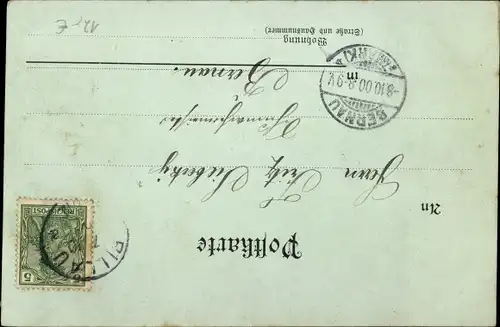 Postkarte
An
Herrn Fritz
in
Bernau.
Wohnung
(Straße und Hausnummer)
BERNAU
(MARK)
8.10.00.8-9V.
PILLAU
REICHSPOST
5
12,-E